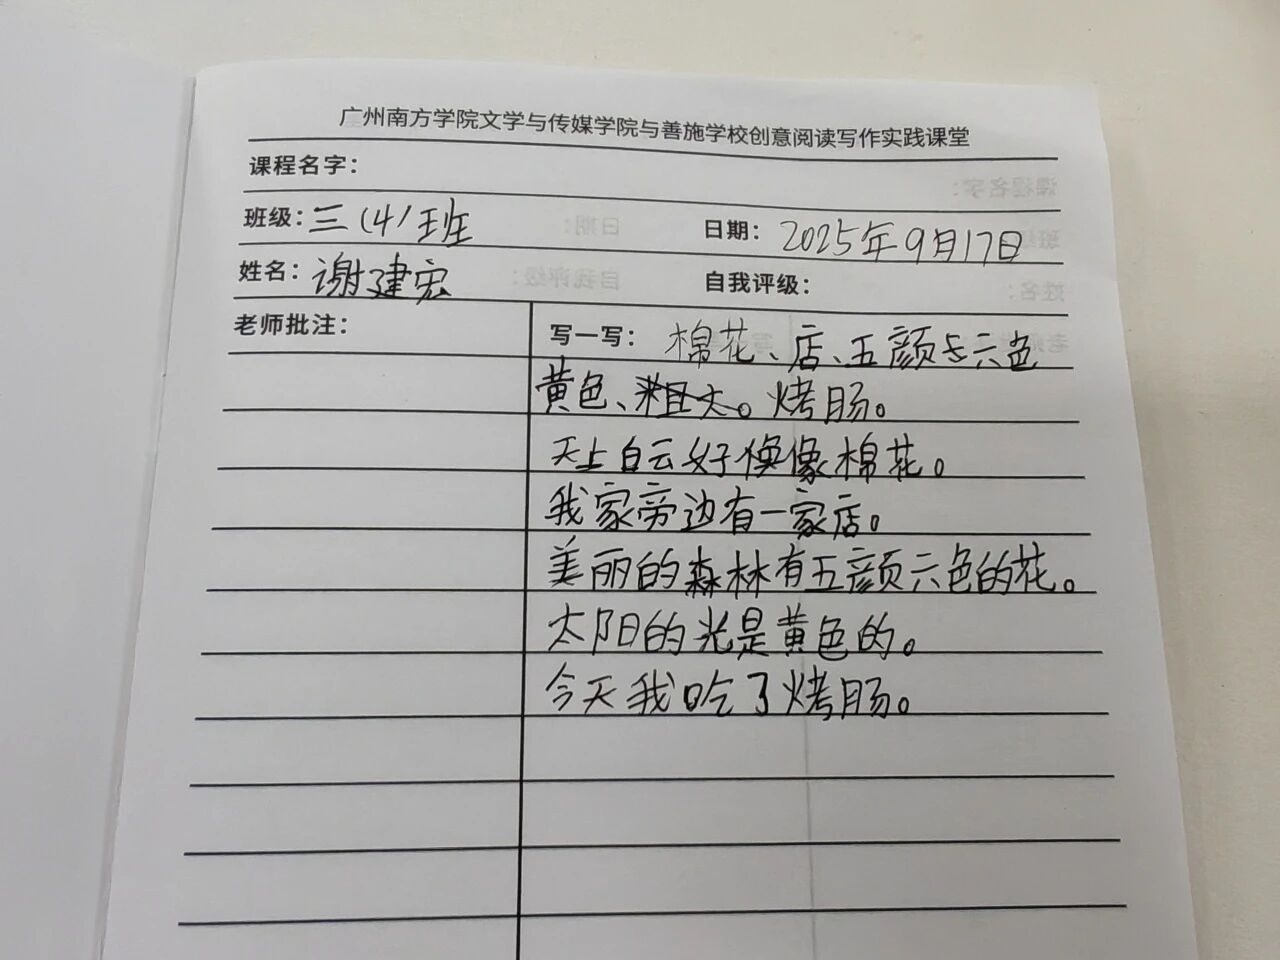 广州南方学院文学与传媒学院与善施学校创意阅读写作实践课堂
课程名字：
班级：三(4)班 日期：2025年9月17日
姓名：谢建宏 自我评级：
老师批注：
写一写：棉花、店、五颜与六色
黄色、粗大。烤肠。
天上白云好像棉花。
我家旁边有一家店。
美丽的森林有五颜六色的花。
太阳的光是黄色的。
今天我吃了烤肠。